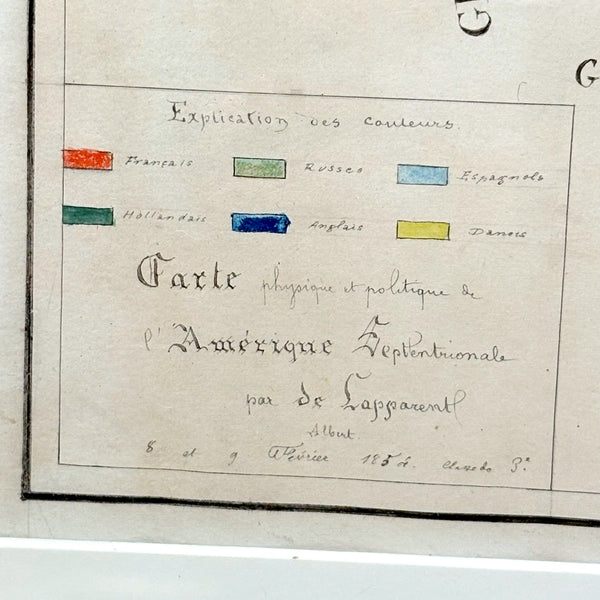 G
G
Explication des couleurs.
Français Russes Espagnols
Hollandais Anglais Danois
Carte physique et politique de
l'Amérique Septentrionale
par de Lapparent
Albert
8 et 9 Février Classe de 3e